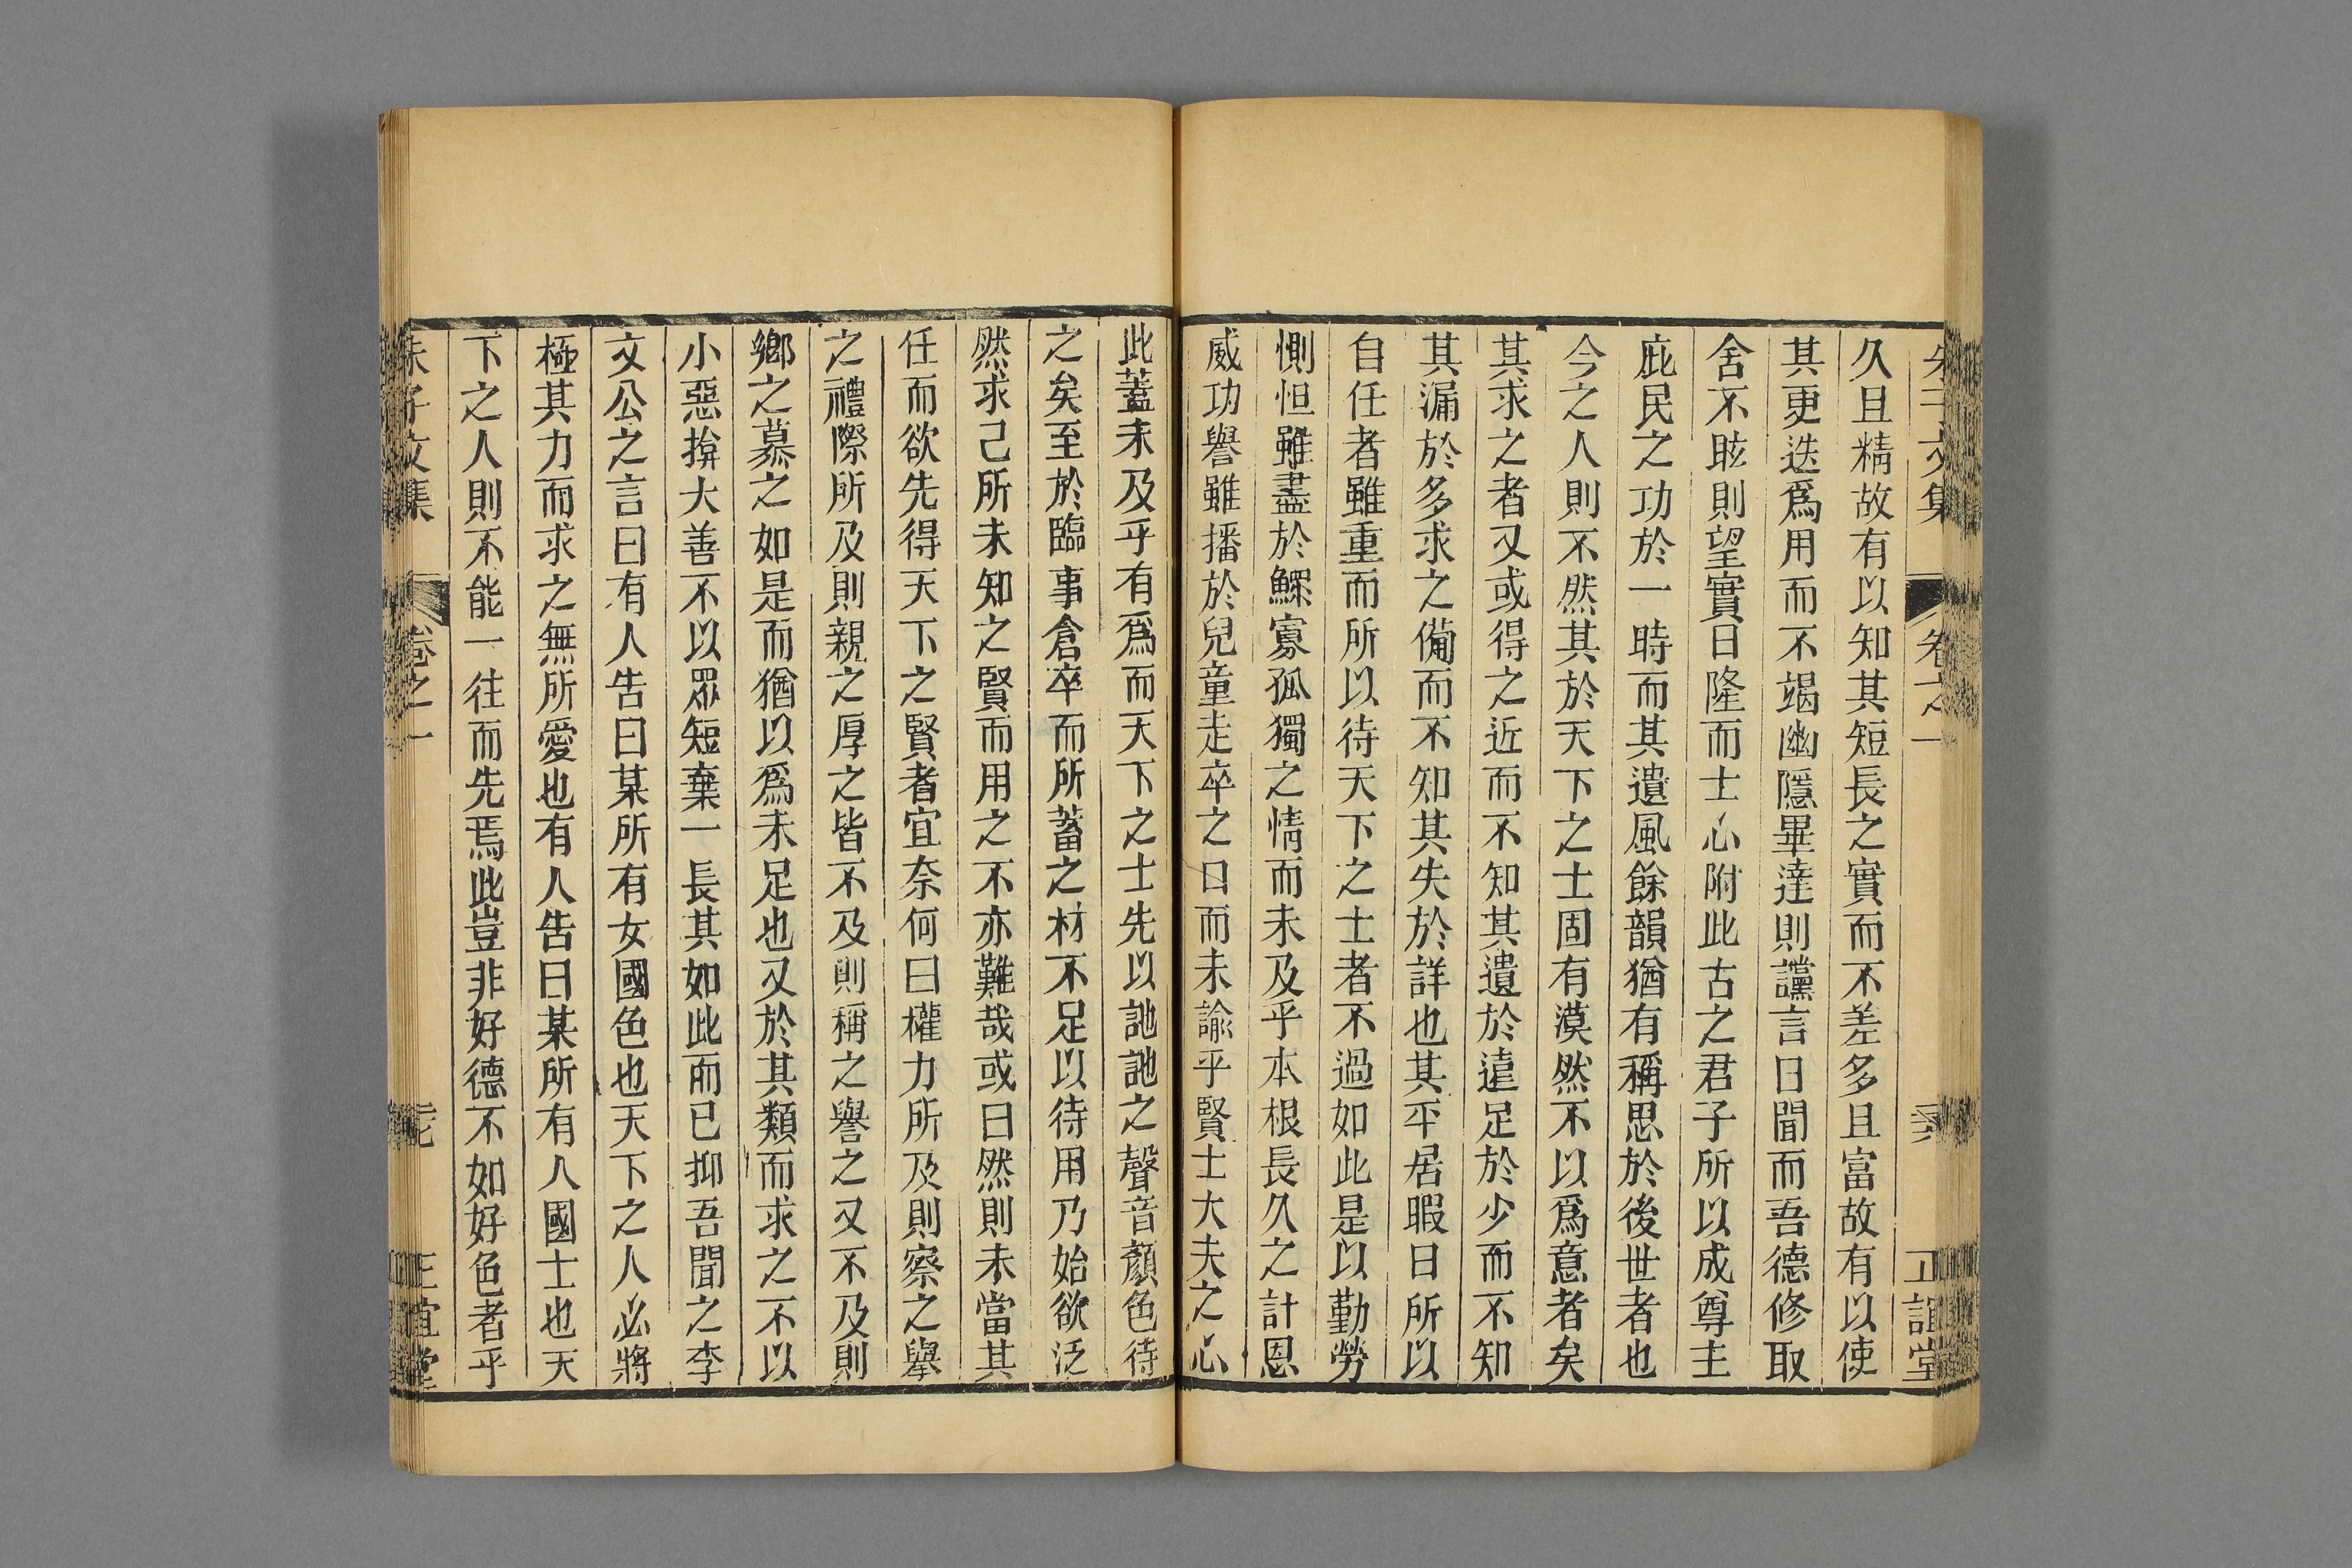 朱子文集 卷之一 正誼堂
久且精故有以知其短長之實而不差多且富故有以使
其更迭爲用而不竭幽隱畢達則讜言日聞而吾德修取
舍不眩則望實日隆而士心附此古之君子所以成尊主
庇民之功於一時而其遺風餘韻猶有稱思於後世者也
今之人則不然其於天下之士固有漠然不以爲意者矣
其求之者又或得之近而不知其遺於遠足於少而不知
其漏於多求之備而不知其失於詳也其平居暇日所以
自任者雖重而所以待天下之士者不過如此是以勤勞
惻怛雖盡於鰥寡孤獨之情而未及乎本根長久之計恩
威功譽雖播於兒童走卒之口而未諭乎賢士大夫之心
此蓋未及乎有爲而天下之士先以訑訑之聲音顏色待
之矣至於臨事倉卒而所蓄之材不足以待用乃始欲泛
然求己所未知之賢而用之不亦難哉或曰然則未當其
任而欲先得天下之賢者宜奈何曰權力所及則察之舉
之禮際所及則親之厚之皆不及則稱之譽之又不及則
鄉之慕之如是而猶以爲未足也又於其類而求之不以
小惡揜大善不以眾短棄一長其如此而已抑吾聞之李
文公之言曰有人告曰某所有女國色也天下之人必將
極其力而求之無所愛也有人告曰某所有人國士也天
下之人則不能一往而先焉此豈非好德不如好色者乎
朱子文集 卷之一 正誼堂